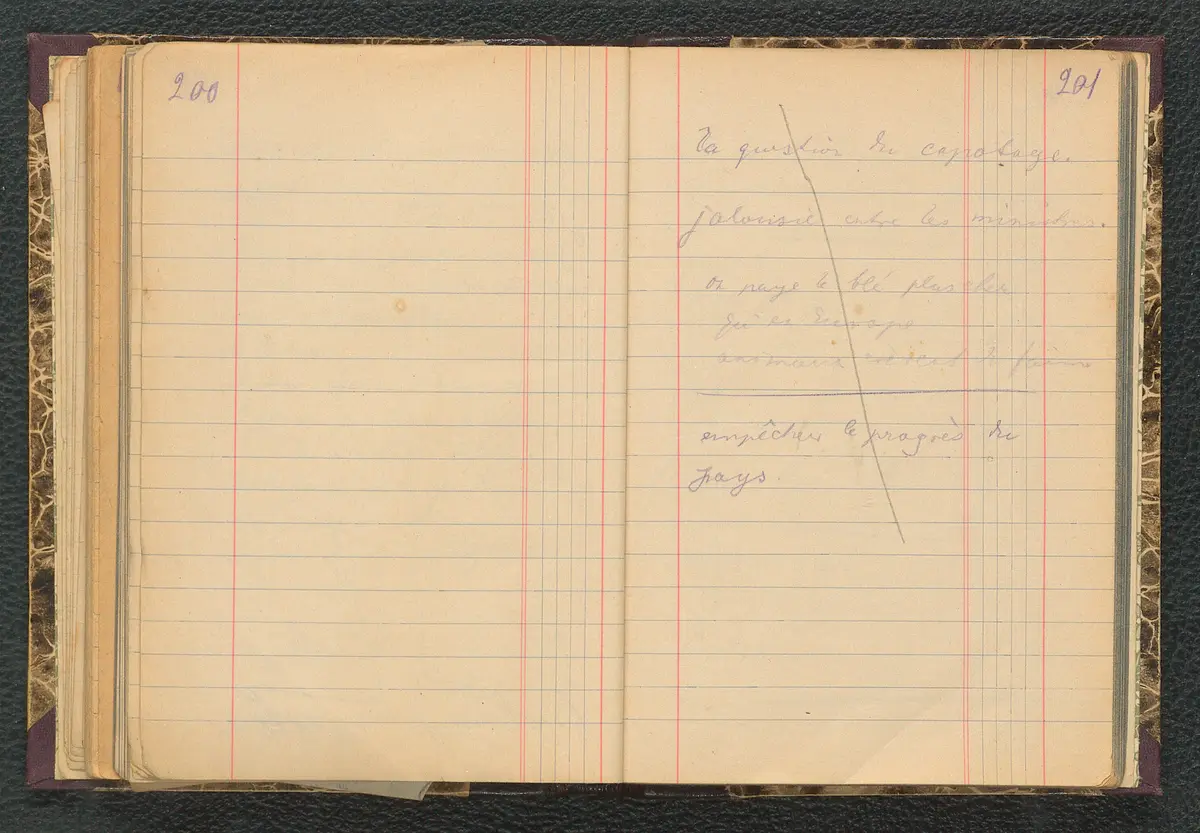 200
201
La question du capotage.
jalousie entre les ministres.
on paye le blé plus cher
qu'en Europe
animaux de faim
empêcher le progrès du
pays.